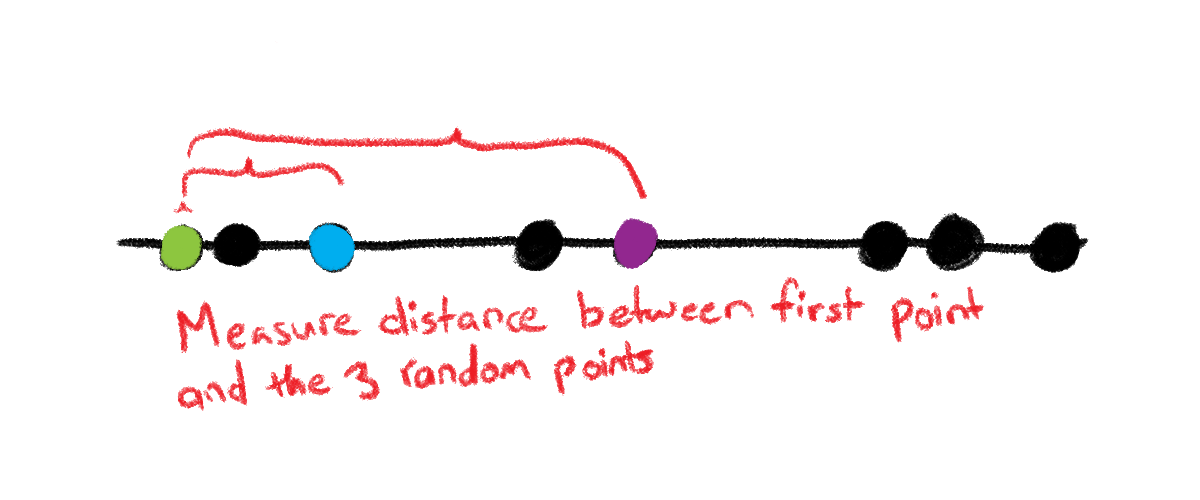 Measure distance between first point
and the 3 random points